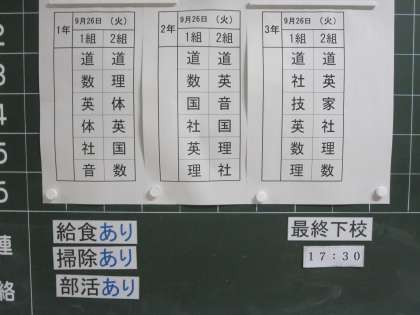 1年 9月26日 (火) 2年 9月26日 (火) 3年 9月26日 (火)
1組 2組 1組 2組 1組 2組
道 道 道 道 道 道
数 理 数 英 社 英
英 体 国 音 技 家
体 英 社 国 英 社
社 国 英 理 数 理
音 数 理 社 理 数
3
4
5
6
連
絡
給食あり
掃除あり
部活あり
最終下校
17:30